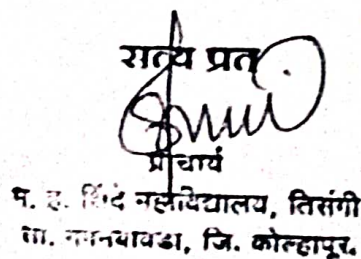 सत्य प्रत
प्राचार्य
म. ह. शिंदे महाविद्यालय, तिसंगी
ता. गगनबावडा, जि. कोल्हापूर.